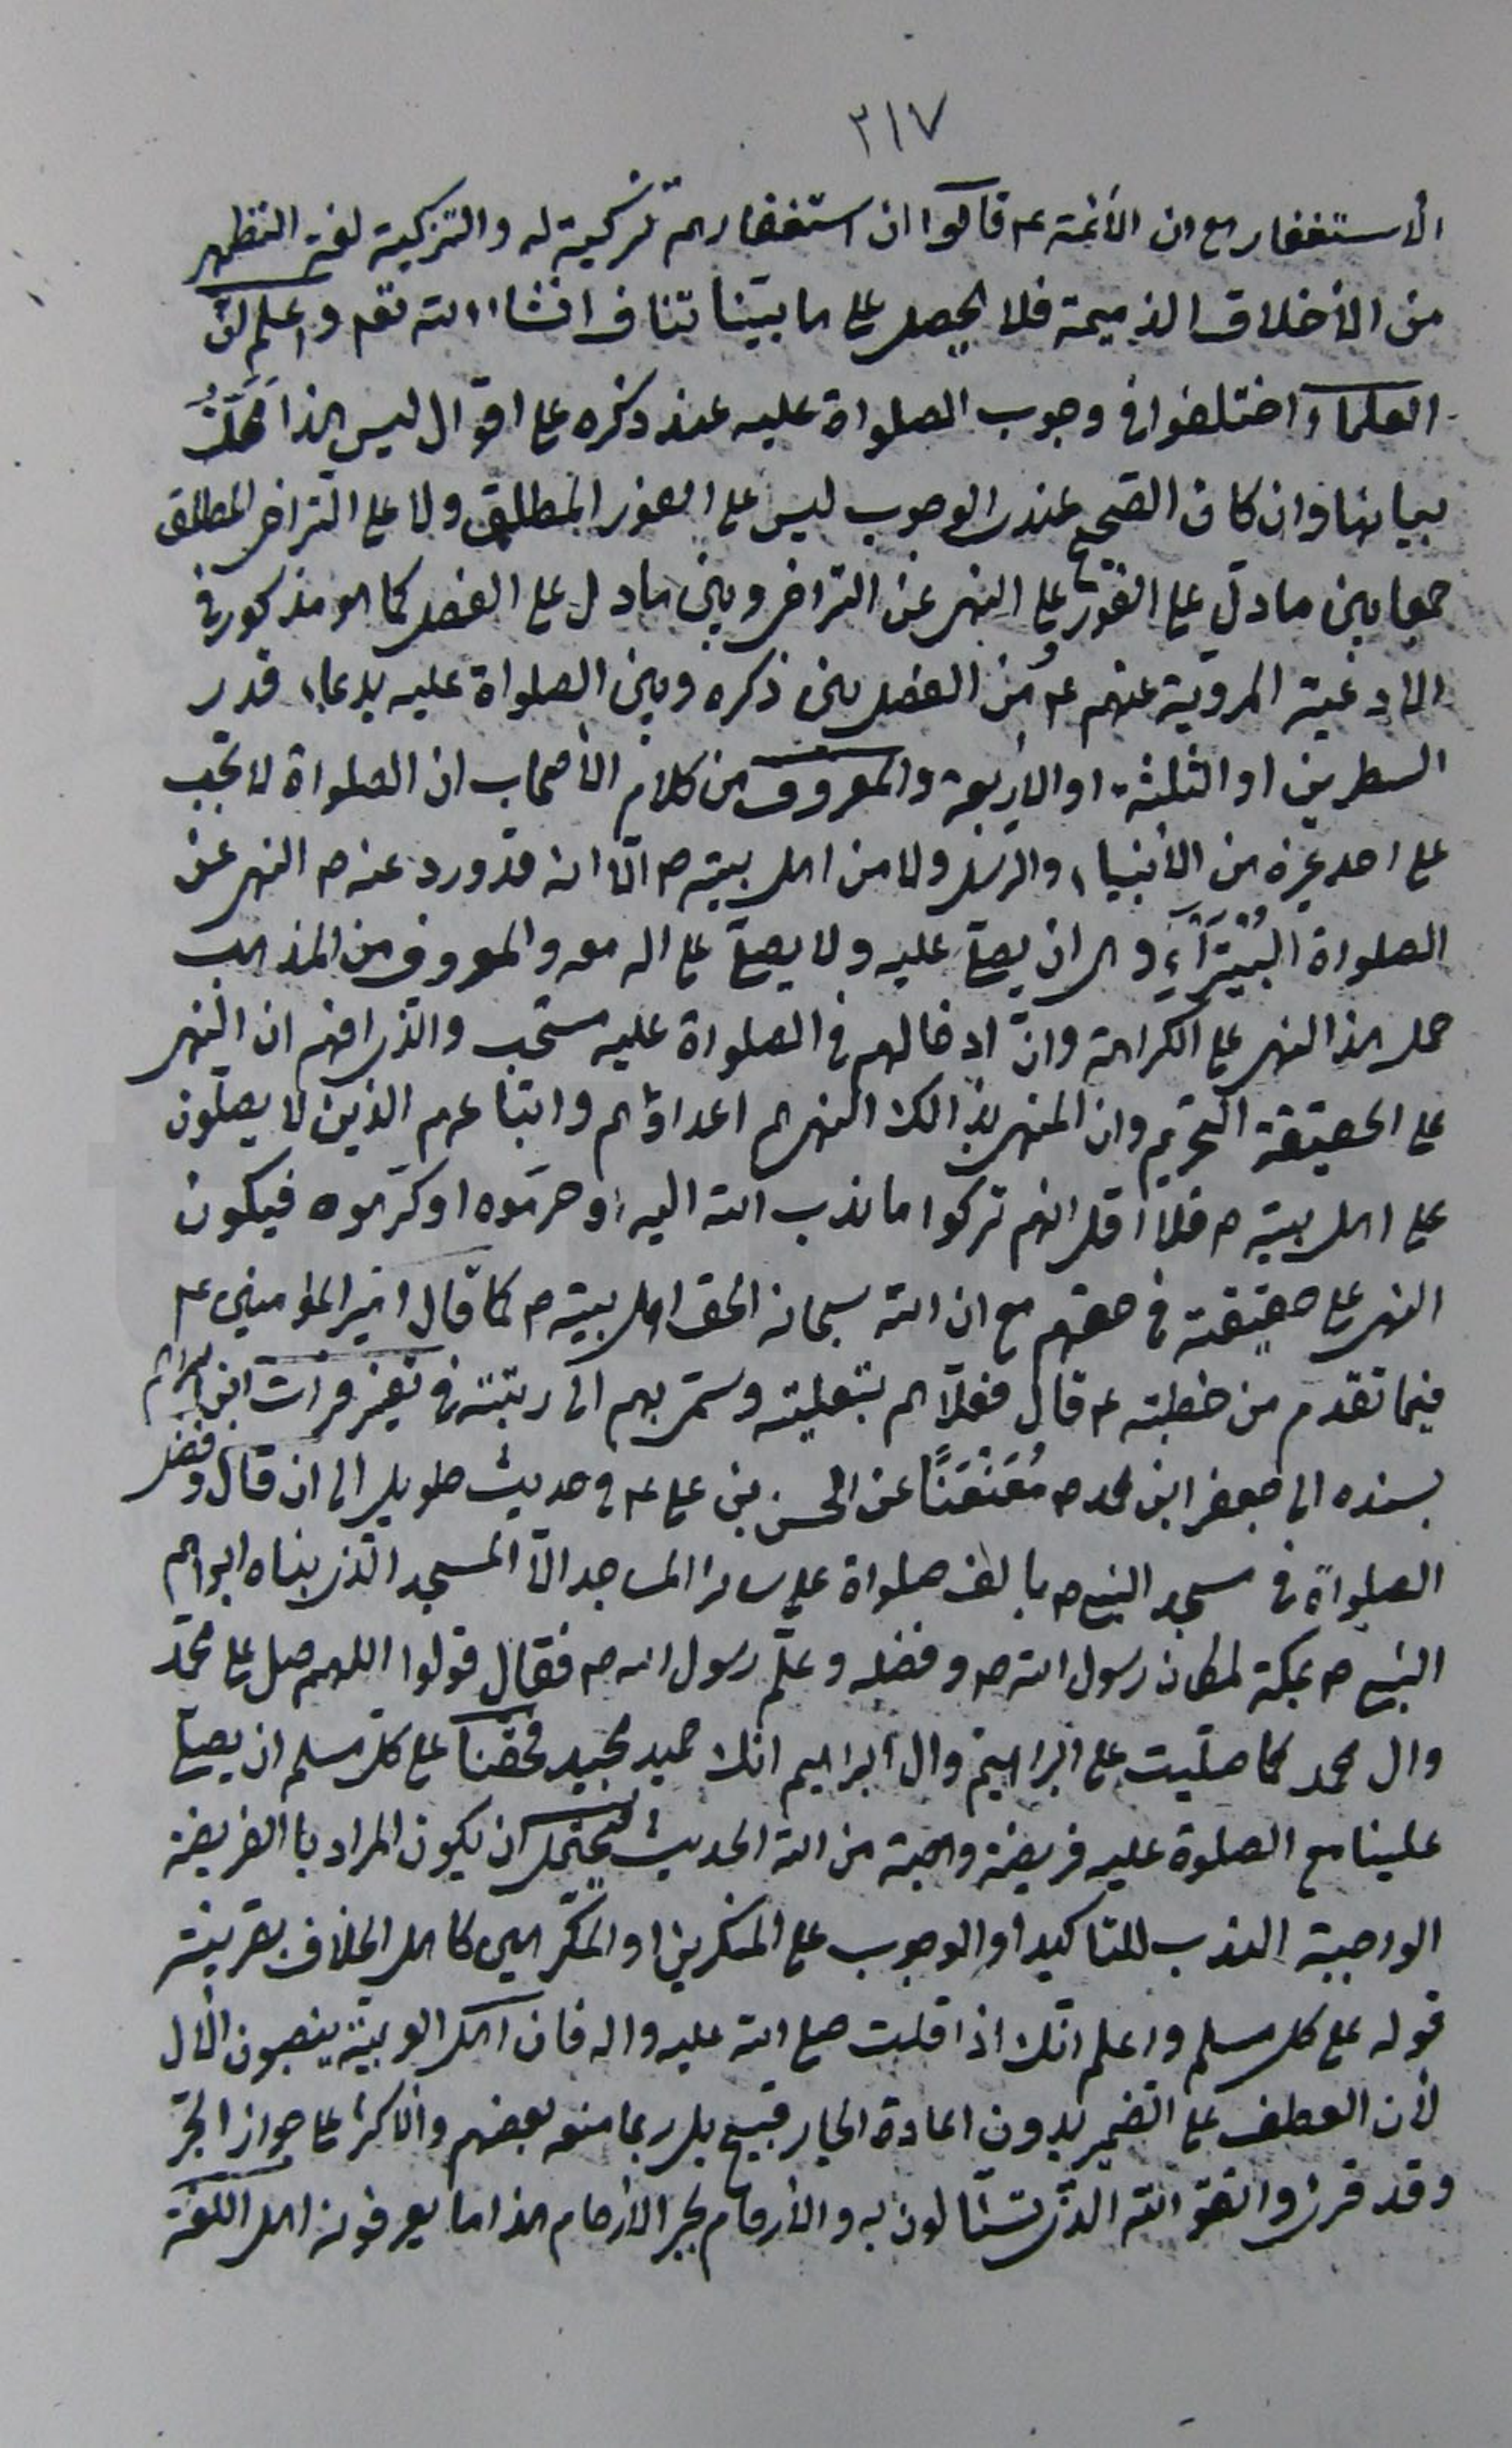 ٣١٧
الأستغفار مع ان الأئمة ع قالوا ان استغفارهم تزكية له والتزكية لغة التطهر
من الأخلاق الذميمة فلا يحصل على ما بيّنا تناف انشاء الله تعم واعلم انّ
العلماء اختلفوا في وجوب الصلواة عليه عند ذكره على اقوال ليس هذا محَلَّ
بيانها وان كان الصحيح عندي الوجوب ليس على الفور المطلق ولا على التراخي المطلق
جمعا بين ما دلّ على الفور وعلى النهي عن التراخي وبين ما دل على الفصل كما هو مذكور في
الادعية المروية عنهم ع من الفصل بين ذكره وبين الصلواة عليه بدعاء قدر
السطرين او الثلثة او الاربعة والمعروف من كلام الأصحاب ان الصلواة لا تجب
على احد غيره من الأنبياء والرسل ولا من اهل بيته ص الّا انه قد ورد عنه ص النهي عن
الصلواة البُتَيْرَآءِ وهي ان يصلّي عليه ولا يصلّي على اله معه والمعروف من المذهب
حمل هذا النهي على الكراهة وانّ ادخالهم في الصلواة عليه مستحب والذي افهم ان النهي
على الحقيقة التحريم وان المنهي بذالك النهي هم اعداؤهم واتباعهم الذين لا يصلّون
على اهل بيته ص فلا اقل انهم تركوا ما ندب الله اليه او حرّموه او كرّهوه فيكون
النهي على حقيقته في حقهم مع ان الله سبحانه الحق اهل بيته ص كما قال امير المؤمنين ع
فيما تقدم من خطبته ع قال فعلّاهم بتعليته وسمّى بهم الى رتبته في تفسير فرات ابن ابراهيم
بسنده الى جعفر ابن محمد ص مُعَنْعَنًا عن الحسن بن علي ع في حديث طويل الى ان قال وفضل
الصلواة في مسجد النبي ص بالف صلواة على سائر المساجد الّا المسجد الّذي بناه ابراهيم
النبي ص بمكة لمكان رسول الله ص وفضله وعلّم رسول الله ص فقال قولوا اللهم صل على محمّد
وال محمد كما صلّيت على ابراهيم وال ابراهيم انك حميد مجيد فحقنا على كل مسلم ان يصلّي
علينا مع الصلوة عليه فريضة واجبة من الله الحديث فيحتمل ان يكون المراد باالفريضة
الواجبة الندب للتاكيد او الوجوب على المنكرين او المكرّهين كاهل الخلاف بقرينة
قوله على كل مسلم واعلم انّك اذا قلت صلى الله عليه واله فان اهل العربيّة ينصبون الأل
لأن العطف على الضمير بدون اعادة الجار قبيح بل ربما منعه بعضهم والأكثر على جواز الجرّ
وقد قرئ واتقوا الله الذي تسّائلون به والأرحام بجر الأرحام هذا ما يعرفونه اهل اللغة